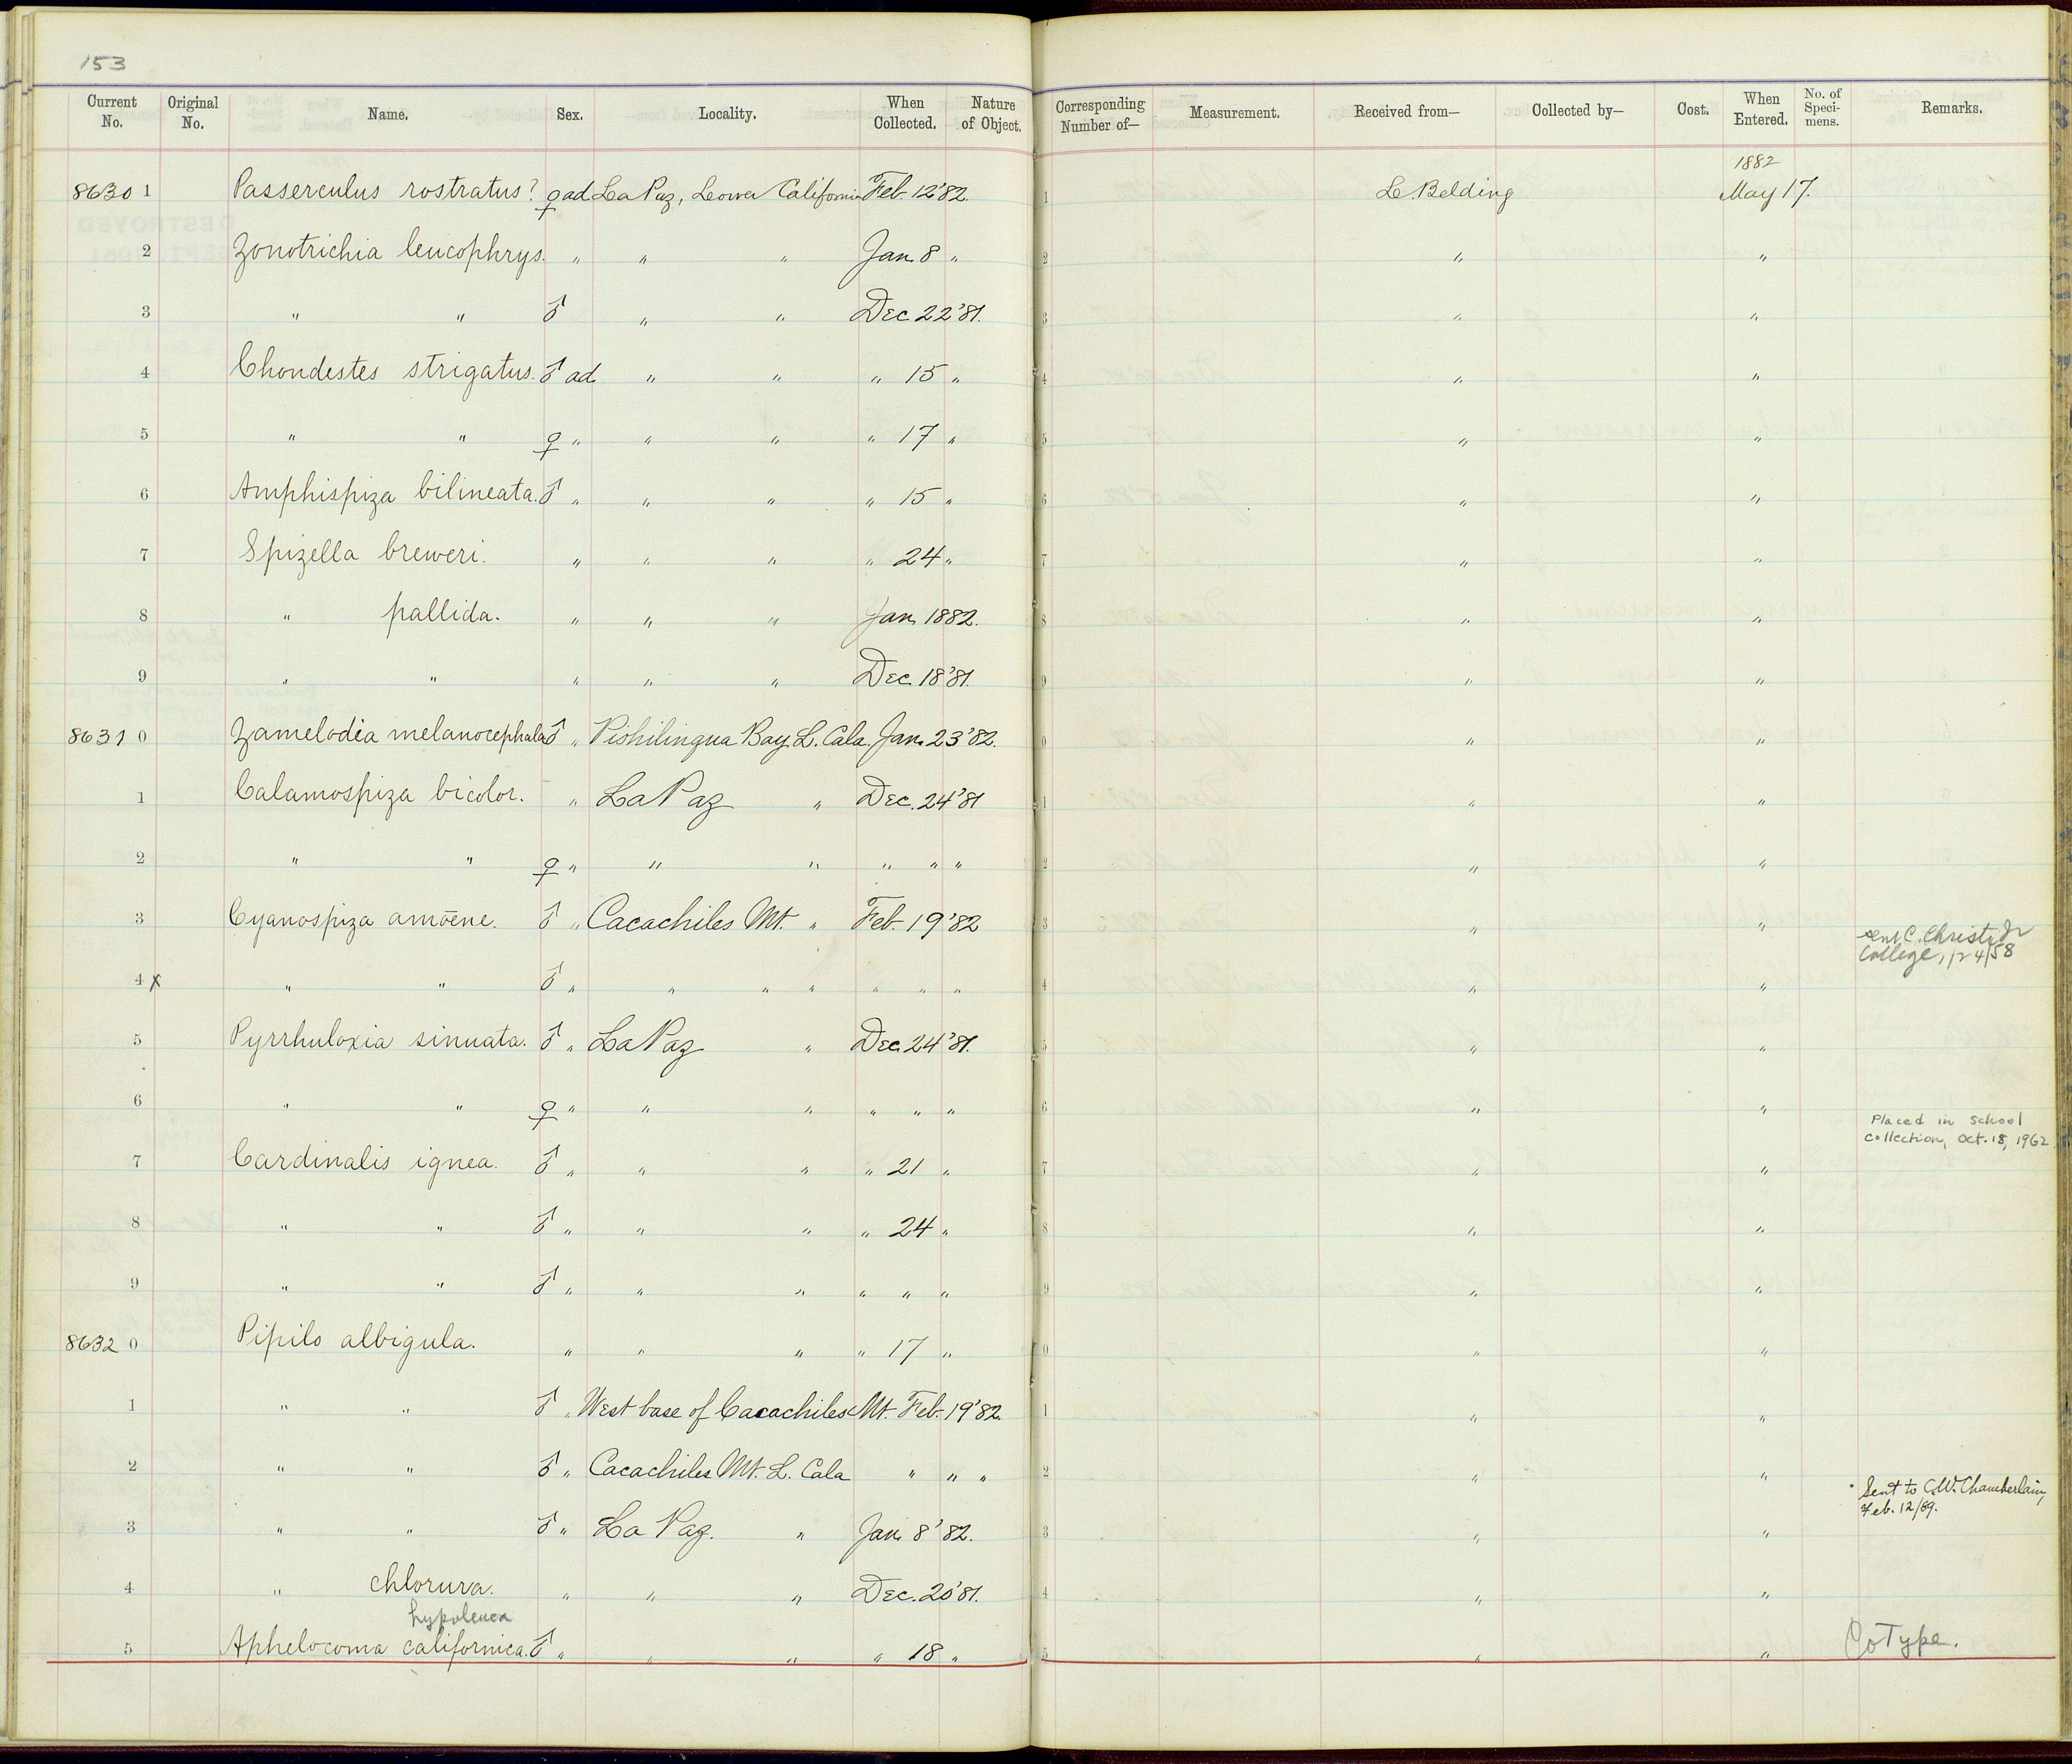 153
Current No. Original No. Name. Sex. Locality. When Collected. Nature of Object. Corresponding Number of— Measurement. Received from— Collected by— Cost. When Entered. No. of Speci- mens. Remarks.
1882
8630 1 Passerculus rostratus? ♀ ad La Paz, Lower California Feb. 12 '82. 1 L. Belding May 17.
2 Zonotrichia leucophrys. " " " Jan. 8 " 2 " "
3 " " ♂ " " Dec. 22 '81. 3 " "
4 Chondestes strigatus. ♂ ad. " " " 15 " 4 " "
5 " " ♀ " " " " 17 " 5 " "
6 Amphispiza bilineata. ♂ " " " " 15 " 6 " "
7 Spizella breweri. " " " " 24 " 7 " "
8 " pallida. " " " Jan. 1882. 8 " "
9 " " " " " Dec. 18 '81. 9 " "
8631 0 Zamelodia melanocephala ♂ " Pishilingua Bay, L. Cala. Jan. 23 '82. 0 " "
1 Calamospiza bicolor. " La Paz " Dec. 24 '81 1 " "
2 " " ♀ " " " " " " 2 " "
3 Cyanospiza amoene. ♂ " Cacachiles Mt. " Feb. 19 '82 3 " "
sent C. Christ Jr
College, 1/24/58
4 x " " ♂ " " " " " " " 4 " "
5 Pyrrhuloxia sinuata. ♂ " La Paz " Dec. 24 '81. 5 " "
6 " " ♀ " " " " " " 6 " "
Placed in School
Collection, Oct. 18, 1962
7 Cardinalis ignea. ♂ " " " " 21 " 7 " "
8 " " ♂ " " " " 24 " 8 " "
9 " " ♂ " " " " " " 9 " "
8632 0 Pipilo albigula. " " " " 17 " 0 " "
1 " " ♂ " West base of Cacachiles Mt. Feb. 19 '82. 1 " "
2 " " ♂ " Cacachiles Mt. L. Cala " " " 2 " "
Sent to C.W. Chamberlain,
Feb. 12/89.
3 " " ♂ " La Paz. " Jan. 8 '82. 3 " "
4 " chlorura. " " " Dec. 20 '81. 4 " "
hypoleuca
5 Aphelocoma californica. ♂ " " " " 18 " 5 " " CoType.